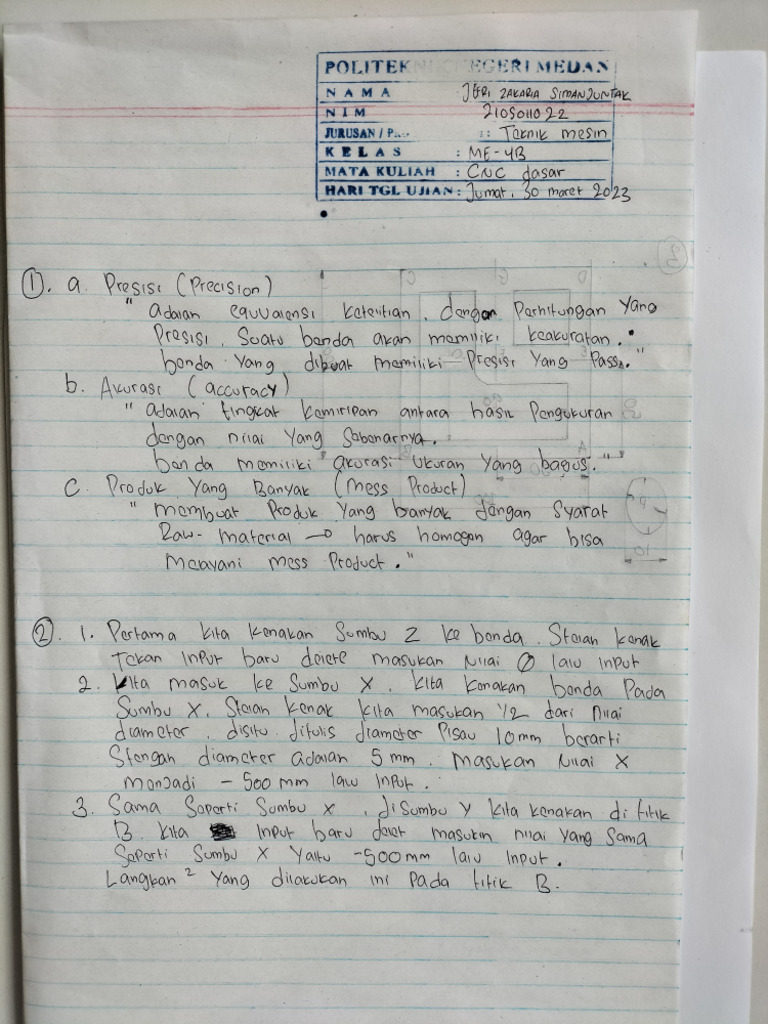 POLITEK NEGERI MEDAN
NAMA JERI ZAKARIA SIMANJUNTAK
NIM 2105011022
JURUSAN / P... : Teknik mesin
KELAS : ME-4B
MATA KULIAH : CNC dasar
HARI TGL UJIAN : Jumat, 30 maret 2023
1. a. Presisi (Precision)
" adalah equvalensi ketelitian, dengan Perhitungan yang
Presisi. Suatu benda akan memiliki keakuratan.
benda yang dibuat memiliki Presisi yang Pass."
b. Akurasi (accuracy)
" adalah tingkat kemiripan antara hasil Pengukuran
dengan nilai yang Sebenarnya.
benda memiliki akurasi ukuran yang bagus."
C. Produk Yang Banyak (Mess Product)
" membuat Produk yang banyak dengan Syarat
Raw-material → harus homogen agar bisa
Melayani mess Product."
2. 1. Pertama kita kenakan Sumbu Z ke benda. Stelah kenak
Tekan input baru delete masukan Nilai 0 lalu input
2. Kita masuk ke Sumbu X. kita kenakan benda Pada
Sumbu X. Stelah kenak kita masukan 1/2 dari nilai
diameter. disitu ditulis diameter Pisau 10mm berarti
Stengah diameter adalah 5 mm. Masukan Nilai X
menjadi - 500 mm lalu input.
3. Sama Seperti Sumbu X, diSumbu Y kita kenakan di titik
B. kita input baru delet masukin nilai yang Sama
Seperti Sumbu X Yaitu -500mm lalu input.
Langkah² Yang dilakukan ini Pada titik B.